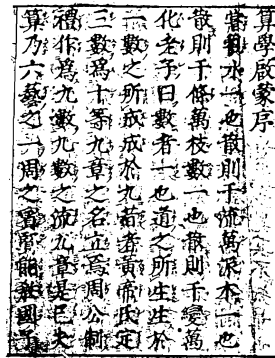 算學啟蒙序
嘗觀水一也散則千流萬派木一也
散則千條萬枝數一也散則千變萬
化老子曰數者一也道之所生生於
一數之所成成於九昔者黃帝氏定
三數為十等九章之名立焉周公制
禮作為九數九數之流九章是已夫
算乃六藝之一周之賓